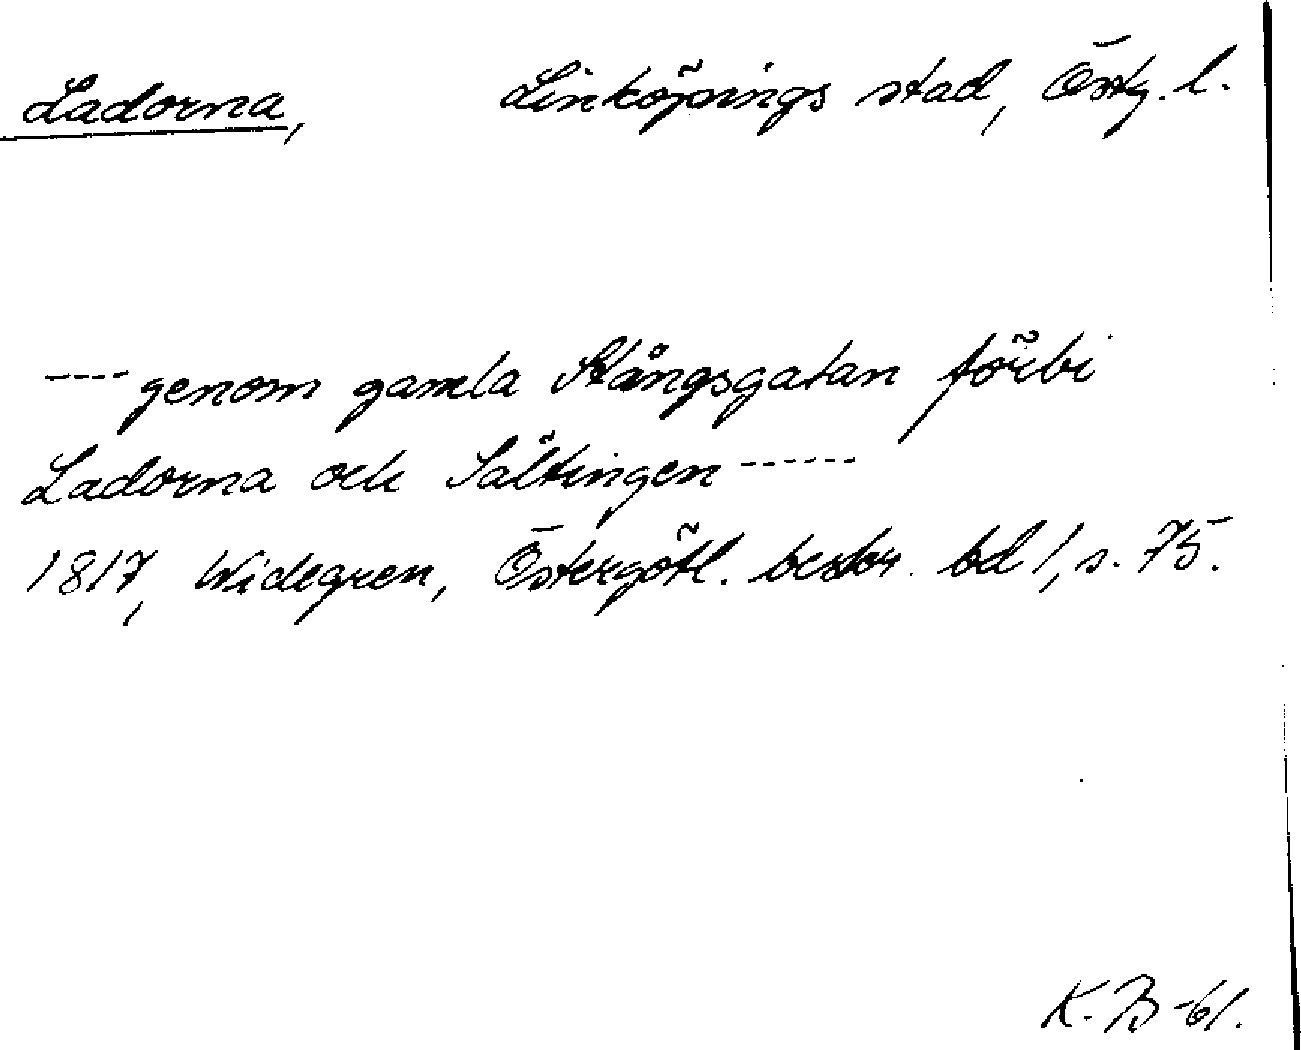 Ladorna, Linköpings stad, Östg. l.
---- genom gamla Stångsgatan förbi
Ladorna och Sältingen ------
1817, Widegren, Östergötl. beskr. bd 1, s. 75.
K. B -61.